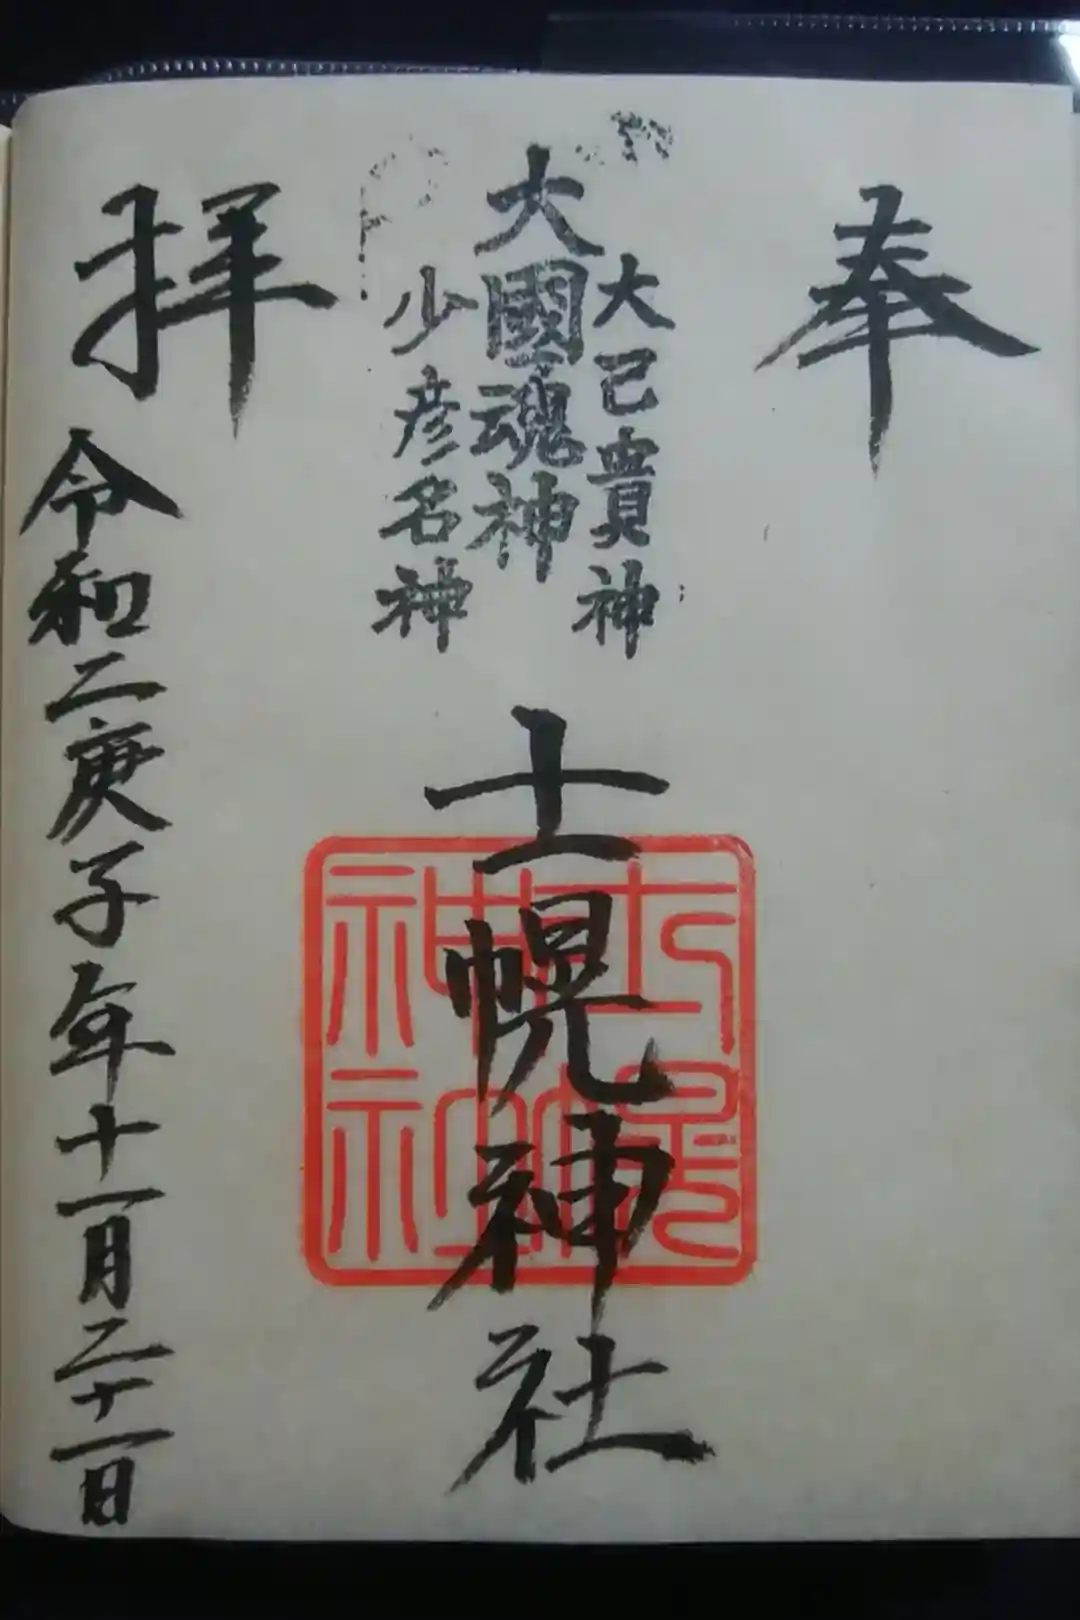 奉
大己貴神
大國魂神
少彦名神
士幌神社
士幌
神社
拝
令和二庚子年十一月二十一日